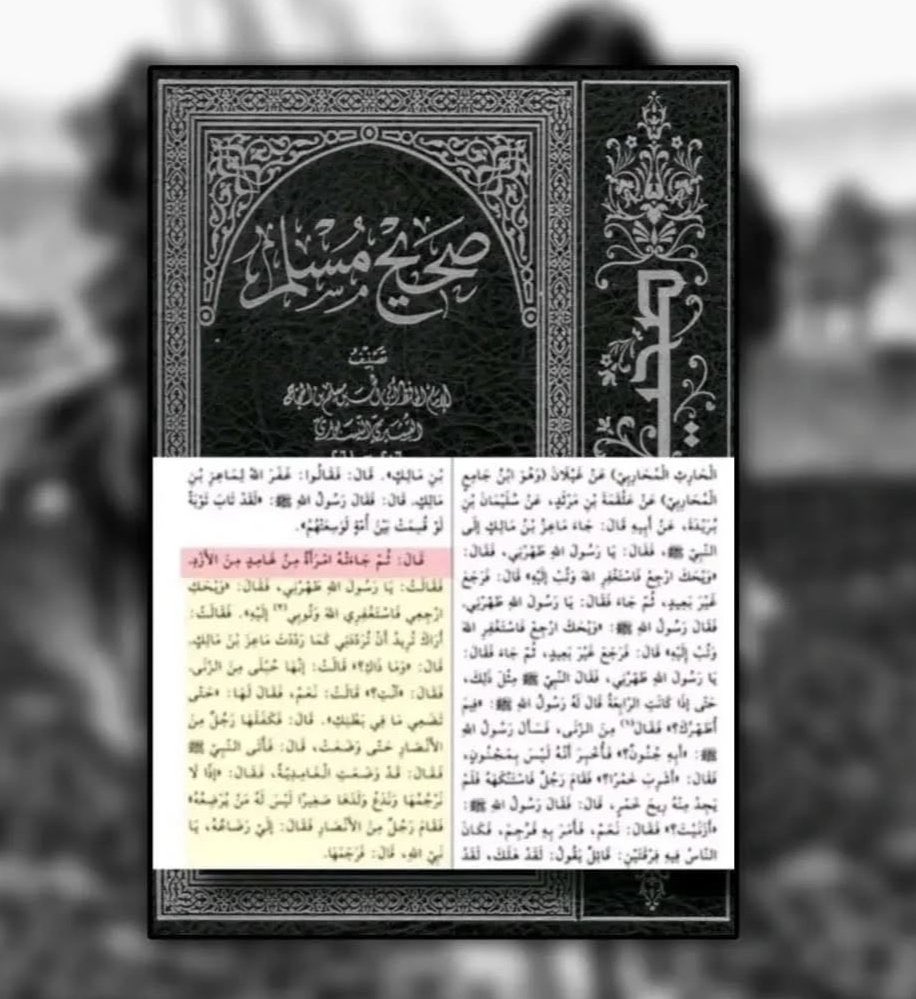 صَحِيحُ مُسْلِم
تَصْنِيفُ
القُشَيْرِيّ النَّيْسَابُورِيّ
الْحَارِثِ الْمُحَارِبِيُّ) عَنْ غَيْلَانَ (وَهُوَ ابْنُ جَامِعٍ
الْمُحَارِبِيُّ) عَنْ عَلْقَمَةَ بْنِ مَرْثَدٍ، عَنْ سُلَيْمَانَ بْنِ
بُرَيْدَةَ، عَنْ أَبِيهِ قَالَ: جَاءَ مَاعِزُ بْنُ مَالِكٍ إِلَى
النَّبِيِّ ﷺ، فَقَالَ: يَا رَسُولَ اللهِ طَهِّرْنِي، فَقَالَ:
«وَيْحَكَ ارْجِعْ فَاسْتَغْفِرِ اللهَ وَتُبْ إِلَيْهِ» قَالَ: فَرَجَعَ
غَيْرَ بَعِيدٍ، ثُمَّ جَاءَ فَقَالَ: يَا رَسُولَ اللهِ طَهِّرْنِي،
فَقَالَ رَسُولُ اللهِ ﷺ: «وَيْحَكَ ارْجِعْ فَاسْتَغْفِرِ اللهَ
وَتُبْ إِلَيْهِ» قَالَ: فَرَجَعَ غَيْرَ بَعِيدٍ، ثُمَّ جَاءَ فَقَالَ:
يَا رَسُولَ اللهِ طَهِّرْنِي، فَقَالَ النَّبِيُّ ﷺ مِثْلَ ذَلِكَ،
حَتَّى إِذَا كَانَتِ الرَّابِعَةُ قَالَ لَهُ رَسُولُ اللهِ ﷺ: «فِيمَ
أُطَهِّرُكَ؟» فَقَالَ(١) مِنَ الزِّنَى، فَسَأَلَ رَسُولُ اللهِ
ﷺ: «أَبِهِ جُنُونٌ؟» فَأُخْبِرَ أَنَّهُ لَيْسَ بِمَجْنُونٍ،
فَقَالَ: «أَشَرِبَ خَمْرًا؟» فَقَامَ رَجُلٌ فَاسْتَنْكَهَهُ فَلَمْ
يَجِدْ مِنْهُ رِيحَ خَمْرٍ، قَالَ: فَقَالَ رَسُولُ اللهِ ﷺ:
«أَزَنَيْتَ؟» فَقَالَ: نَعَمْ، فَأَمَرَ بِهِ فَرُجِمَ، فَكَانَ
النَّاسُ فِيهِ فِرْقَتَيْنِ: قَائِلٌ يَقُولُ: لَقَدْ هَلَكَ، لَقَدْ
بْنِ مَالِكٍ». قَالَ: فَقَالُوا: غَفَرَ اللهُ لِمَاعِزِ بْنِ
مَالِكٍ، قَالَ: فَقَالَ رَسُولُ اللهِ ﷺ: «لَقَدْ تَابَ تَوْبَةً
لَوْ قُسِمَتْ بَيْنَ أُمَّةٍ لَوَسِعَتْهُمْ».
قَالَ: ثُمَّ جَاءَتْهُ امْرَأَةٌ مِنْ غَامِدٍ مِنَ الْأَزْدِ،
فَقَالَتْ: يَا رَسُولَ اللهِ طَهِّرْنِي، فَقَالَ: «وَيْحَكِ
ارْجِعِي فَاسْتَغْفِرِي اللهَ وَتُوبِي(٢) إِلَيْهِ». فَقَالَتْ:
أَرَاكَ تُرِيدُ أَنْ تُرَدِّدَنِي كَمَا رَدَّدْتَ مَاعِزَ بْنَ مَالِكٍ،
قَالَ: «وَمَا ذَاكِ؟» قَالَتْ: إِنَّهَا حُبْلَى مِنَ الزِّنَى،
فَقَالَ: «آنْتِ؟» قَالَتْ: نَعَمْ، فَقَالَ لَهَا: «حَتَّى
تَضَعِي مَا فِي بَطْنِكِ». قَالَ: فَكَفَلَهَا رَجُلٌ مِنَ
الْأَنْصَارِ حَتَّى وَضَعَتْ، قَالَ: فَأَتَى النَّبِيَّ ﷺ
فَقَالَ: قَدْ وَضَعَتِ الْغَامِدِيَّةُ، فَقَالَ: «إِذًا لَا
نَرْجُمُهَا وَنَدَعُ وَلَدَهَا صَغِيرًا لَيْسَ لَهُ مَنْ يُرْضِعُهُ»
فَقَامَ رَجُلٌ مِنَ الْأَنْصَارِ فَقَالَ: إِلَيَّ رَضَاعُهُ، يَا
نَبِيَّ اللهِ، قَالَ: فَرَجَمَهَا.